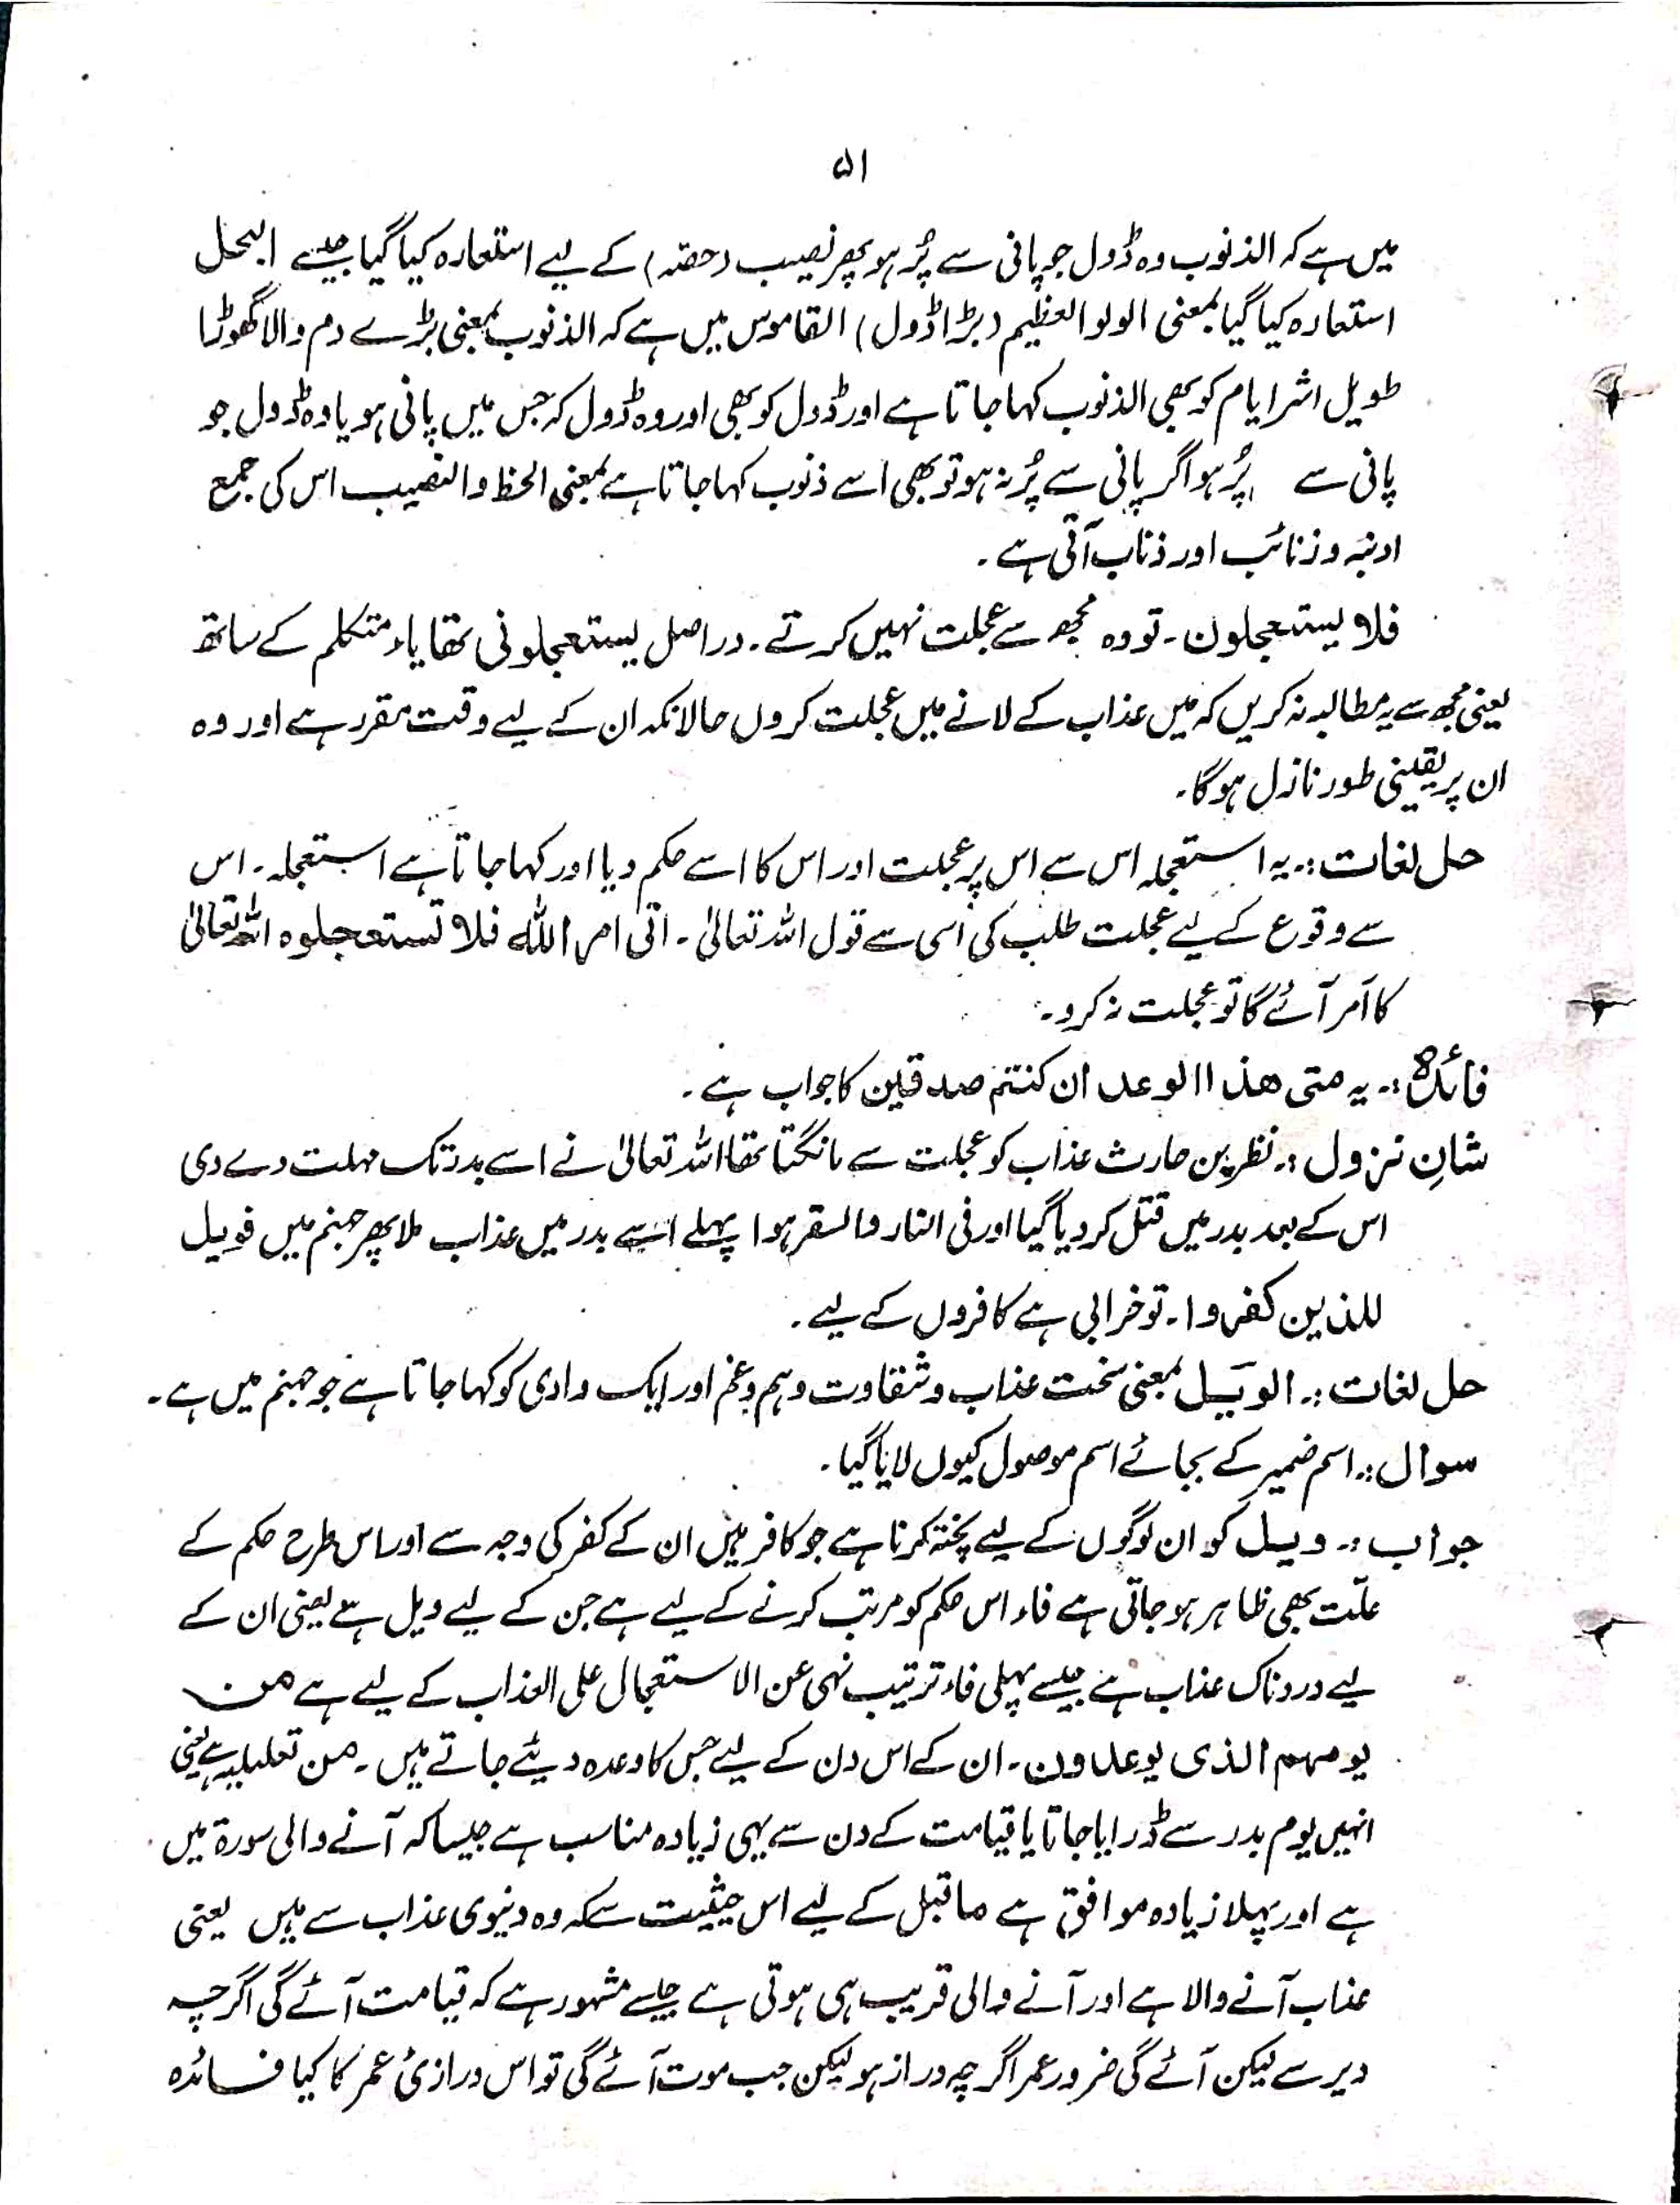 ۵۱
میں ہے کہ الذنوب وہ ڈول جو پانی سے پُر ہو پھر نصیب (حصّہ) کے لیے استعارہ کیا گیا جیسے السجل
استعارہ کیا گیا بمعنی الولو العظیم (بڑا ڈول) القاموس میں ہے کہ الذنوب بمعنی بڑے دم والا گھوڑا
طویل اشر ایام کو بھی الذنوب کہا جاتا ہے اور ڈول کو بھی اور وہ ڈول کہ جس میں پانی ہو یا وہ ڈول جو
پانی سے پُر ہو اگر پانی سے پُر نہ ہو تو بھی اسے ذنوب کہا جاتا ہے بمعنی الحظ والنصیب اس کی جمع
ادنبہ وزنائب اور ذناب آتی ہے۔
فلا یستعجلون۔ تو وہ مجھ سے عجلت نہیں کرتے۔ دراصل یستعجلونی تھا یاء متکلم کے ساتھ
یعنی مجھ سے یہ مطالبہ نہ کریں کہ میں عذاب کے لانے میں عجلت کروں حالانکہ ان کے لیے وقت مقرر ہے اور وہ
ان پر یقینی طور نازل ہوگا۔
حل لغات :۔ یہ استعجلہ اس سے اس پر عجلت اور اس کا اسے حکم دیا اور کہا جاتا ہے استعجلہ۔ اس
سے وقوع کے لیے عجلت طلب کی اسی سے قول اللہ تعالیٰ۔ اتی امر اللہ فلا تستعجلوہ اللہ تعالیٰ
کا امر آئے گا تو عجلت نہ کرو۔
فائدہ :۔ یہ متی ھذا الوعد ان کنتم صدقین کا جواب ہے۔
شانِ نزول :۔ نظر بن حارث عذاب کو عجلت سے مانگتا تھا اللہ تعالیٰ نے اسے بدر تک مہلت دے دی
اس کے بعد بدر میں قتل کر دیا گیا اور فی النار والسقر ہوا پہلے اسے بدر میں عذاب ملا پھر جہنم میں فویل
للذین کفروا۔ تو خرابی ہے کافروں کے لیے۔
حل لغات :۔ الویل بمعنی سخت عذاب و شقاوت وہم وغم اور ایک وادی کو کہا جاتا ہے جو جہنم میں ہے۔
سوال :۔ اسم ضمیر کے بجائے اسم موصول کیوں لایا گیا۔
جواب :۔ ویل کو ان لوگوں کے لیے پختہ کرنا ہے جو کافر ہیں ان کے کفر کی وجہ سے اور اس طرح حکم کے
علّت بھی ظاہر ہو جاتی ہے فاء اس حکم کو مرتب کرنے کے لیے ہے جن کے لیے ویل ہے یعنی ان کے
لیے دردناک عذاب ہے جیسے پہلی فاء ترتیب نہی عن الاستعجال علی العذاب کے لیے ہے من
یومہم الذی یوعدون۔ ان کے اس دن کے لیے جس کا وعدہ دیئے جاتے ہیں۔ من تعلیلیہ ہے یعنی
انہیں یوم بدر سے ڈرایا جاتا یا قیامت کے دن سے یہی زیادہ مناسب ہے جیسا کہ آنے والی سورۃ میں
ہے اور پہلا زیادہ موافق ہے ماقبل کے لیے اس حیثیت سے کہ وہ دنیوی عذاب سے ہیں یعنی
عذاب آنے والا ہے اور آنے والی قریب ہی ہوتی ہے جیسے مشہور ہے کہ قیامت آئے گی اگرچہ
دیر سے لیکن آئے گی ضرور عمر اگرچہ دراز ہو لیکن جب موت آئے گی تو اس درازئ عمر کا کیا فائدہ